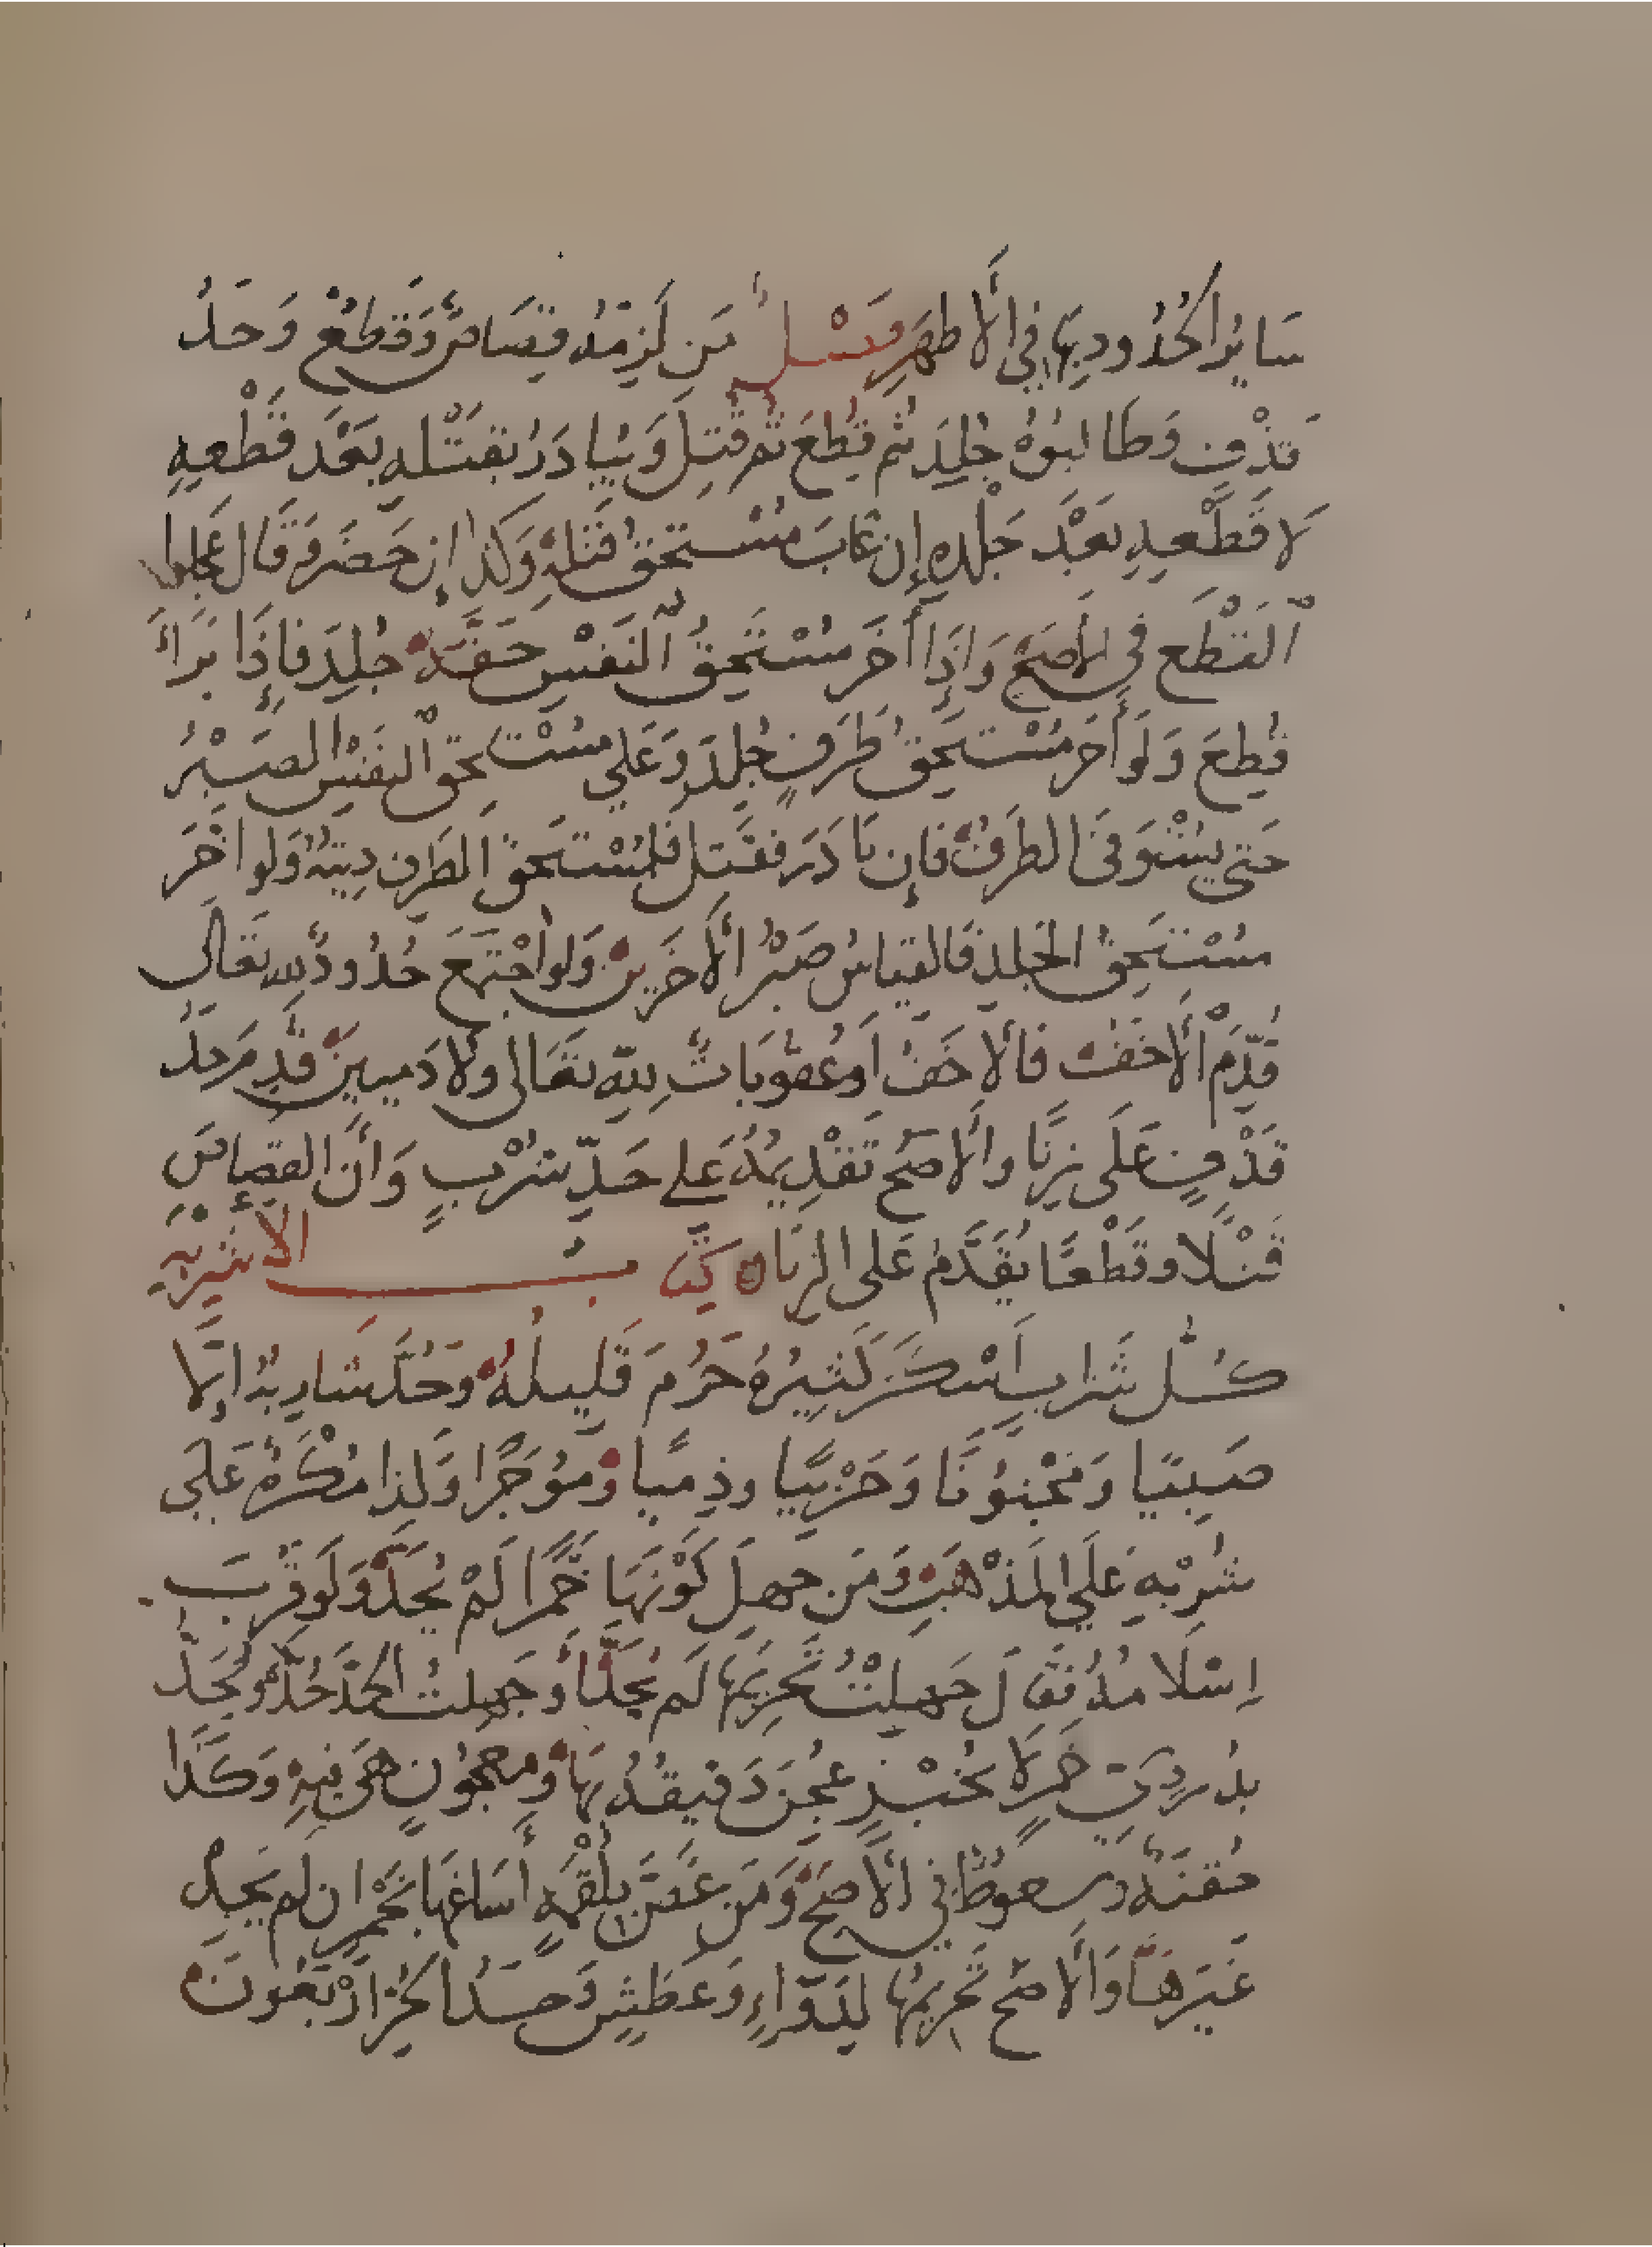 سَائِرُ الحُدُودِ بِهَا فِي الأَظهَرِ فَصْلٌ مَن لَزِمَهُ قِصَاصٌ وَقَطْعٌ وَحَدُّ
قَذْفٍ وَطَالَبُوهُ جُلِدَ ثُمَّ قُطِعَ ثُمَّ قُتِلَ وَيُبَادَرُ بِقَتْلِهِ بَعْدَ قَطْعِهِ
لَا قَطْعِهِ بَعْدَ جَلْدِهِ إِن غَابَ مُسْتَحِقُّ قَتْلِهِ وَكَذَا إِن حَضَرَ وَقَالَ عَجِّلُوا
اَلْقَطْعَ فِي الأَصَحِّ وَإِذَا أَخَّرَ مُسْتَحِقُّ النَفْسِ حَقَّهُ جُلِدَ فَإِذَا بَرَأَ
قُطِعَ وَلَو أَخَّرَ مُسْتَحِقُّ طَرَفٍ جُلِدَ وَعَلَى مُسْتَحِقِّ النَفْسِ الصَبْرُ
حَتى يُسْتَوفَى الطَرَفُ فَإِن بَادَرَ فَقَتَلَ فَلِمُسْتَحِقِّ الطَرَفِ دِيَتُهُ وَلَو اَخَّرَ
مُسْتَحِقُّ الجَلدِ فَالقِيَاسُ صَبْرُ الأَخَرَينِ وَلَو اجْتَمَعَ حُدُودٌ لِلَّهِ تَعَالَى
قُدِّمَ الأَخَفُّ فَالأَخَفُّ اَو عُقُوبَاتٌ لِلّهِ تَعَالَى وَلأدَمِيينَ قُدِّمَ حَدُّ
قَذْفٍ عَلَى زِنًا والأَصَحُّ تَقْدِيمُهُ عَلى حَدِّ شُرْبٍ وَأَنَّ القِصَاصَ
قَتْلًا وقَطْعًا يُقَدَّمُ عَلى الزِنَا ه كِتَابُ الأشْرِبَةِ
كُلُّ شَرَابٍ اَسْكَرَ كَثِيرُهُ حَرُمَ قَلِيلُهُ وَحُدَّ شَارِبُهُ إِلَّا
صَبِيًا وَمَجْنُونًا وَحَرْبِيًّا وذِمِيًا وَمُوْجَرًا وَكَذا مُكْرَهٌ عَلَى
شُرْبِهِ عَلَى المَذْهَبِ وَمَن جَهِلَ كَوْنَهَا خَمْرًا لَمْ يُحَدَّ وَلَو قَرُبَ
اِسْلَامُهُ فَقَالَ جَهِلْتُ تَحْرِيمَهَا لَم يُحَدَّ أَوْ جَهِلتُ الحَدَّ حُدَّ وَيُحَدُّ
بِدُردِيِّ خَمْرٍ لَا بِخُبْزٍ عُجِنَ دَقِيقُهُ بِهَا وَمَعجُونٍ هِيَ فِيهِ وَكَذَا
حُقنَةٌ وَسَعُوطٌ فِي الأَصَحِّ وَمَن غُصَّ بِلُقْمَةٍ أَسَاغَهَا بِخَمْرٍ اِن لَم يَجِدْ
غَيْرَهَا وَالأَصَحُّ تَحْرِيمُهَا لِدَوَاءٍ وَعَطَشٍ وَحَدُّ الحُرِّ اَرْبَعُونَ